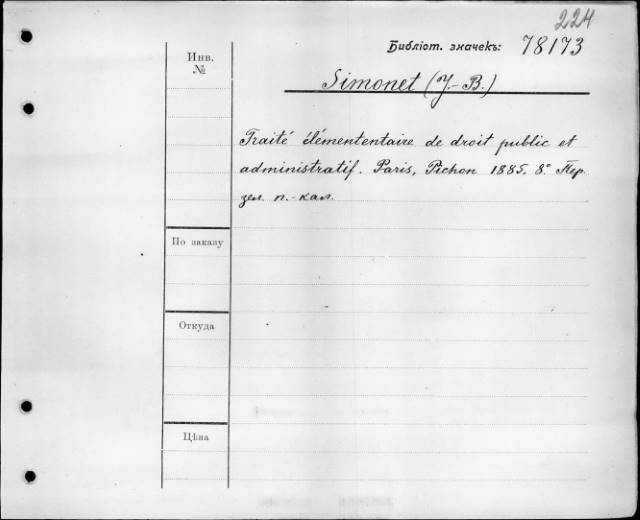 224
Библіот. значекъ: 78173
Инв. №
Simonet (J.-B.)
Traité élémententaire de droit public et
administratif. Paris, Pichon 1885. 8° Пер.
зел. п.-кал.
По заказу
Откуда
Цѣна